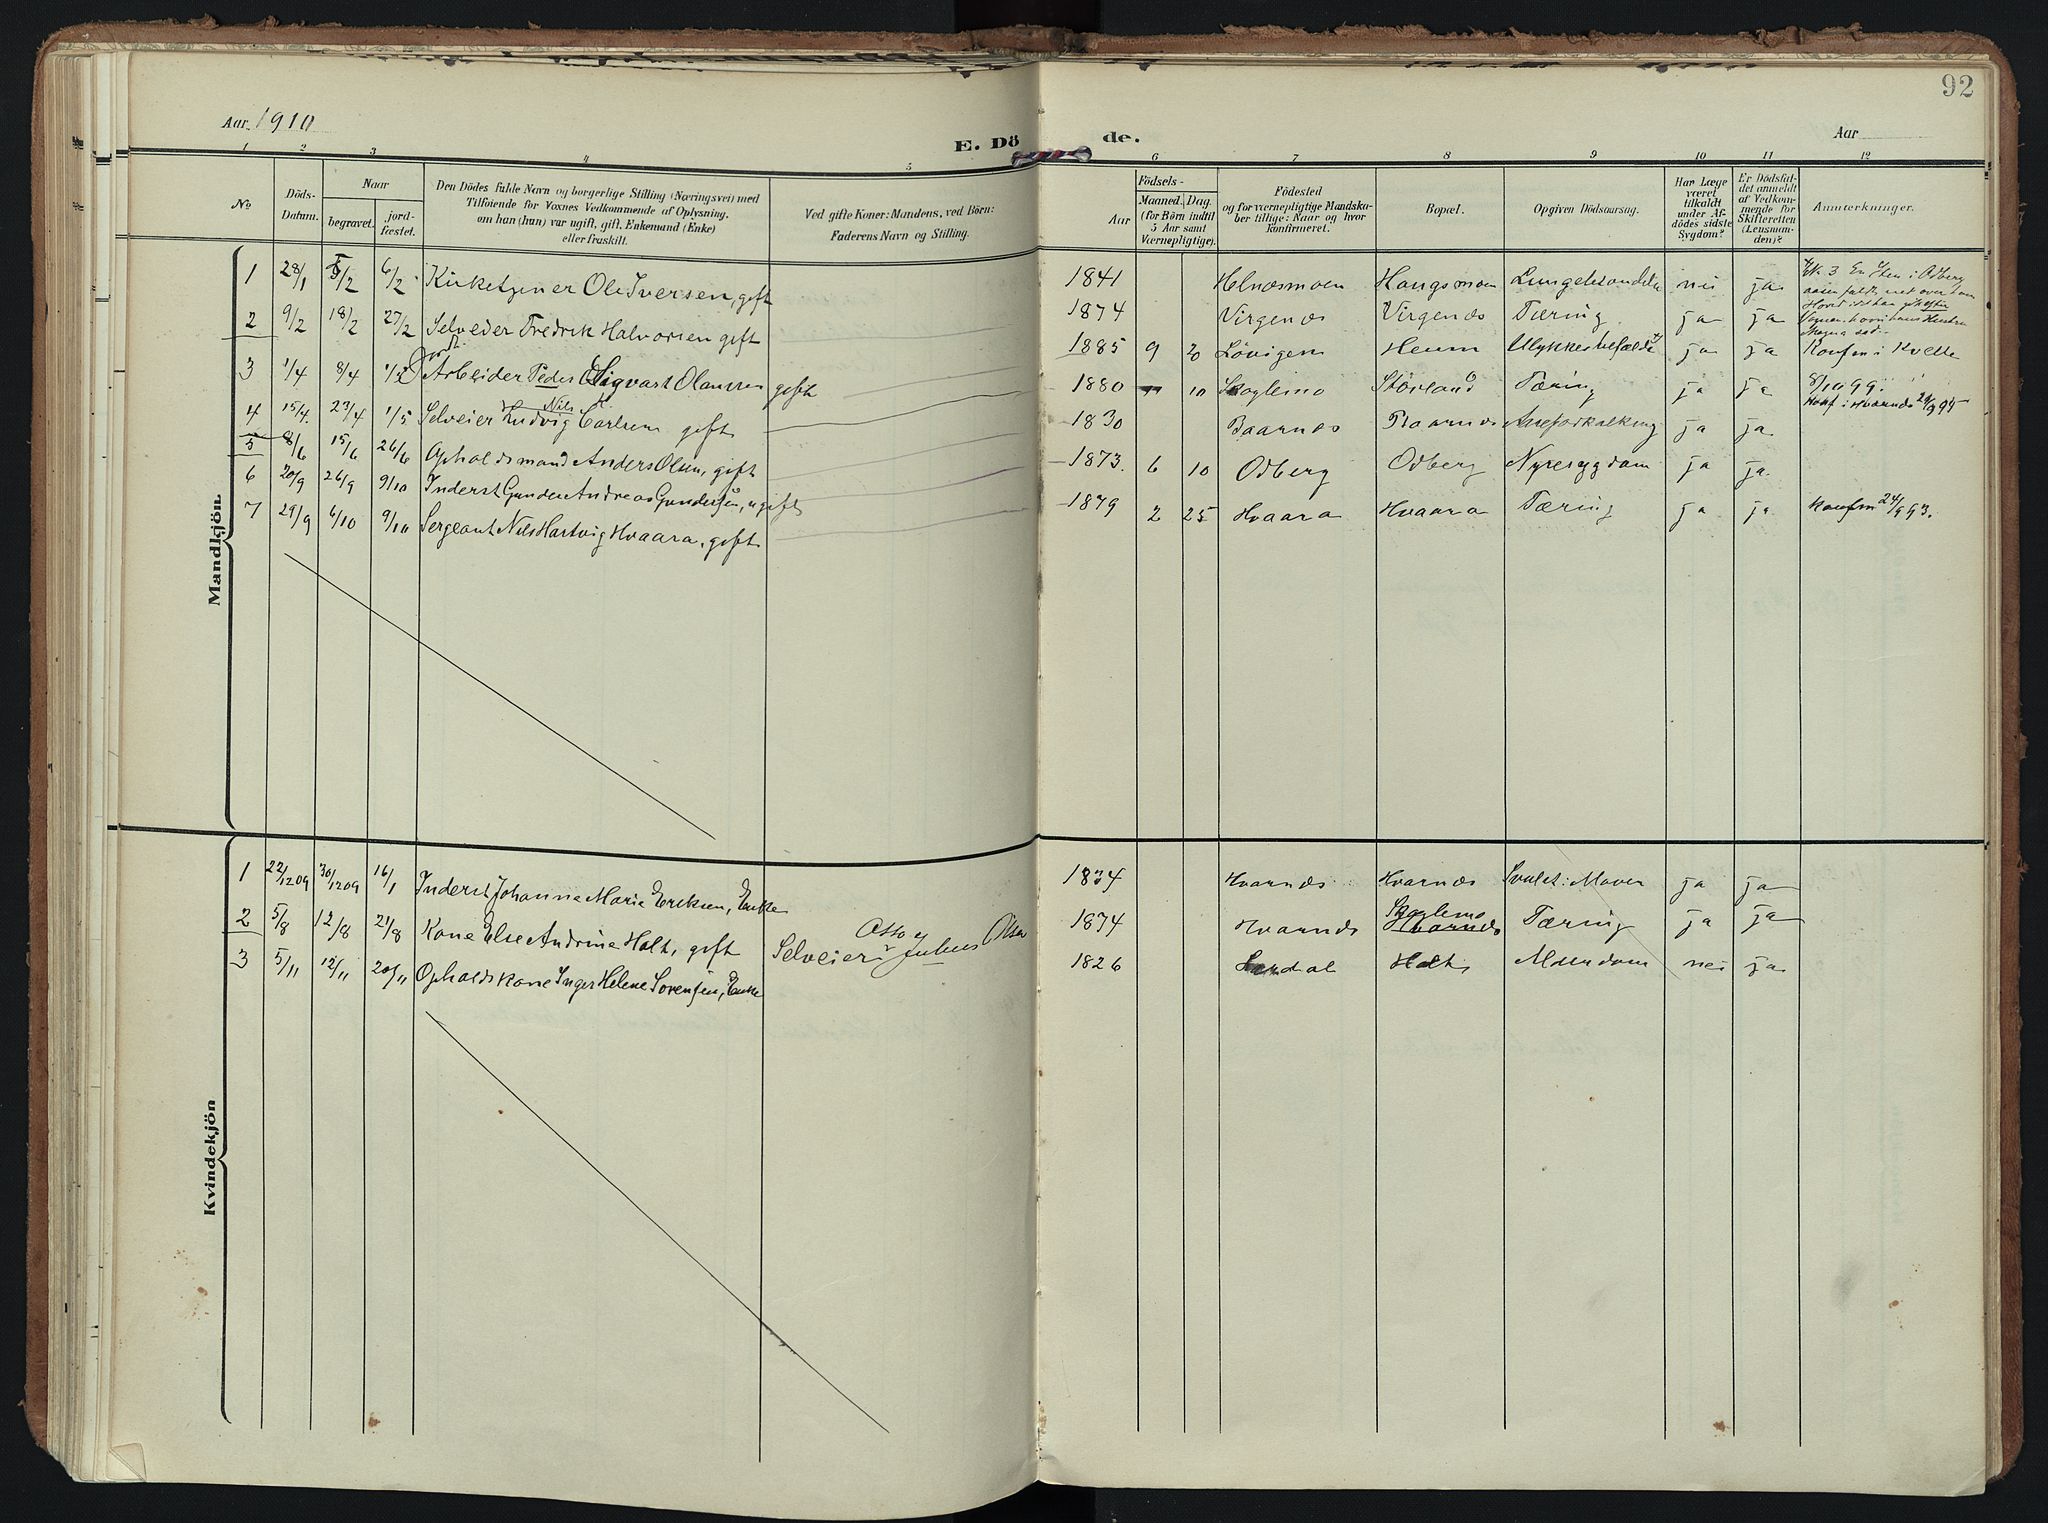 92
Aar 1910
E. Döde.
Aar
1 2 3 4 5 6 7 8 9 10 11 12
No
Döds-Datum.
Naar
begravet.
jord-fæstet.
Den Dödes fulde Navn og borgerlige Stilling (Næringsvei) med
Tilföiende for Voxnes Vedkommende af Oplysning,
om han (hun) var ugift, gift, Enkemand (Enke)
eller fraskilt.
Ved gifte Koner: Mandens, ved Börn:
Faderens Navn og Stilling.
Födsels-
Aar
Maaned. Dag.
(for Börn indtil
5 Aar samt
Værnepligtige).
Födested
og for værnepligtige Mandska-
ber tillige: Naar og hvor
konfirmeret.
Bopæl.
Opgiven Dödsaarsag.
Har Læge
været
tilkaldt
under Af-
dödes sidste
Sygdom?
Er Dödsfal-
det anmeldt
af Vedkom-
mende for
Skifteretten
(Lensman-
den)?
Anmærkninger.
Mandkjön.
1 28/1 5/2 6/2 Kirketjener Ole Iversen, gift 1841 Helnæsmoen Haugsmoen nei ja
2 9/2 18/2 27/2 Selveier Fredrik Halvorsen gift 1874 Virgenes Virgenes Tæring ja ja
3 1/4 8/4 Arbeider Peder Sigvart Olaussen gift 1885 9 20 Lövigen Heum ja ja Konfm i Kvelle 8/10 99.
4 15/4 23/4 1/5 Selveier Ludvig Nils Carlsen gift 1880 10 Skogleino Tæring ja ja Konf. i Hvarnes
5 8/6 15/6 26/6 Opholdsmand Anders Olsen, gift 1830 Baarnes Baarnes Areforkalkning ja ja
6 20/9 26/9 9/10 Inderst Gunder Andreas Gundersen, ugift 1873. 6 10 Odberg Odberg Nyresygdom ja ja.
7 29/9 6/10 9/10 Sergeant Nils Hartvig Hvaara, gift 1879 2 25 Hvaara Hvaara Tæring ja ja Konfm 24/9 93.
Kvindekjön
1 22/12 09 30/12 09 16/1 Inderst Johanne Marie Eriksen, Enke 1834 Hvarnes Hvarnes Svulst i Maven ja ja
2 5/8 12/8 21/8 Kone Else Andrine Holt, gift Selveier Julius Olsen 1874 Hvarnes Skogleino Hvarnes Tæring ja ja
3 5/11 12/11 20/11 Opholdskone Inger Helene Sorensen, Enke 1826 Holt Alderdom nei ja